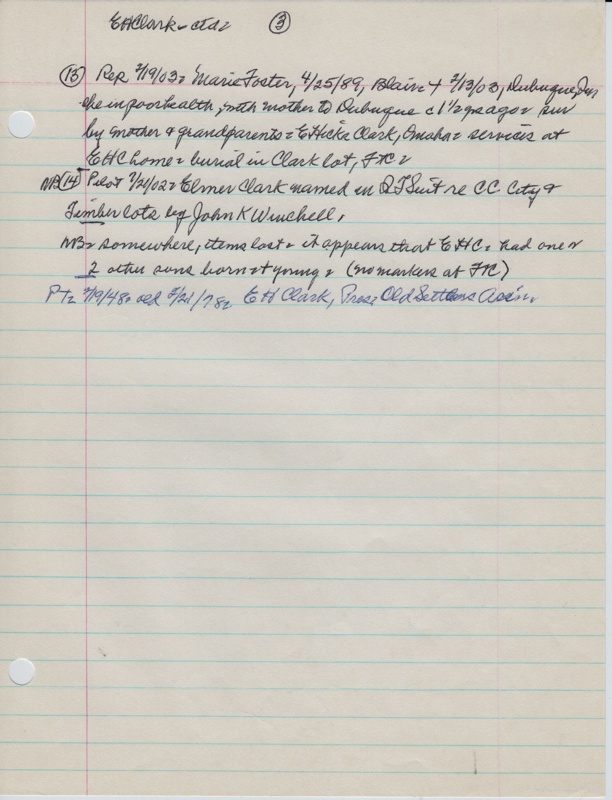 EHClark - ctd= ③
⑬ Rep 2/19/03= Marie Foster, 4/25/89, Blair + 2/13/03, Dubuque,
she in poor health, with mother to Dubuque c 1½ yrs ago = sur
by mother & grandparents = E Hicks Clark, Omaha = services at
EHC home = burial in Clark lot, FTC=
NB ⑭ Pilot 7/21/02= Elmer Clark named in QT Suit re C.C. City &
Timber lots by John K Winchell,
NB= somewhere, items lost = it appears that EHC= had one or
2 other sons born + young = (no markers at FTC)
PT= 2/19/48= old 5/21/78= EH Clark, Pres= Old Settlers Ass'n.